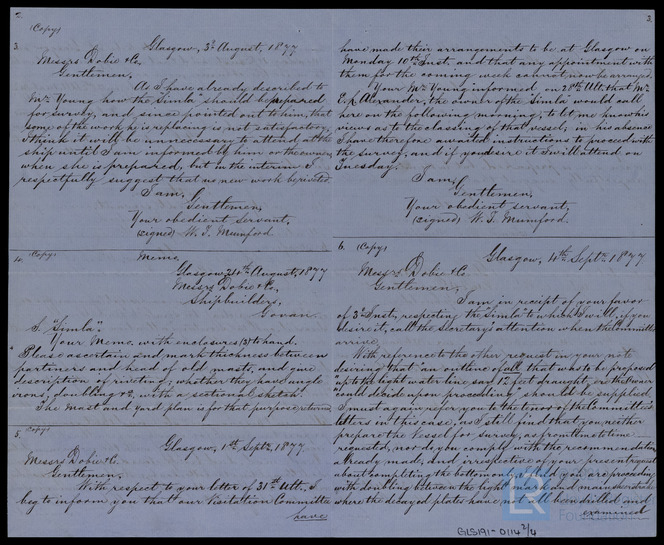 2.
(Copy)
3.
Glasgow, 3rd August, 1877
Messrs Dobie & Co.
Gentlemen,
As I have already described to
Mr. Young how the Simla should be prepared
for survey, and since pointed out to him, that
some of the work he is replacing is not satisfactory,
I think it will be unnecessary to attend at the
ship until I am informed by him or the owner,
when she is prepared, but in the interim I
respectfully suggest that no new work be riveted.
I am,
Gentlemen,
Your obedient servant,
(signed) W. T. Mumford
4.
(Copy)
Memo.
Glasgow 24th August, 1877
Messrs Dobie & Co.,
Shipbuilders,
Govan.
S. "Simla".
Your Memo. with enclosures (3) to hand.
Please ascertain and mark thickness between
partners and head of old masts, and give
description of riveting; whether they have angle
irons, doubling &c, with a sectional sketch.
The Mast and yard plan is for that purpose returned.
5.
(Copy)
Glasgow, 1st Septr. 1877.
Messrs Dobie & Co.
Gentlemen,
With respect to your letter of 31st Ult., I
beg to inform you that our Visitation Committee
have
3.
have made their arrangements to be at Glasgow on
Monday 10th Inst. and that any appointment with
them for the coming week cannot now be arranged.
Your Mr. Young informed on 28th Ult. that Mr.
Alexander, the owner of the "Simla" would call
here on the following morning, to let me know his
views as to the classing of that vessel, in his absence
I have therefore awaited instructions to proceed with
the survey, and if you desire it I will attend on
Tuesday.
I am,
Gentlemen,
Your obedient servant,
(signed) W. T. Mumford.
6.
(Copy)
Glasgow, 4th Septr. 1877
Messrs Dobie & Co.
Gentlemen,
I am in receipt of your favor
of 3rd Inst., respecting the "Simla" to which I will, if you
desire it, call the Secretary's attention when the Committee
arrive.
With reference to the other request in your note
desiring that an outline of all that was to be proposed
up to the light water line say 12 feet draught, or that
could decide upon proceeding should be supplied
I must again refer you to the tenor of the Committee's
letters in this case, as I still find that you neither
prepare the Vessel for survey, as from time to time
requested, nor do you comply with the recommendation
already made, and irrespective of your present request
about completing the bottom, I are proceeding
with doubling between the light mark and main sheerstrake
where the decayed plates have not all been drilled and
examined
GLS191-0114 2/4
LR
Foundation